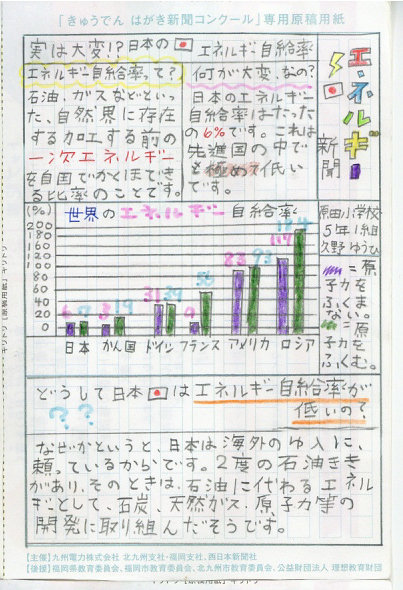 「きゅうでん はがき新聞コンクール」専用原稿用紙
エネルギー
新聞
原田小学校
5年1組
久野 ゆうひ
実は大変!?日本の
エネルギー自給率
エネルギー自給率って?
石油、ガスなどといっ
た、自然界に存在
する加工する前の
一次エネルギー
を自国でかくほでき
る比率のことです。
何が大変なの?
日本のエネルギー
自給率はたった
の6%です。これは
先進国の中で
も極めて低い
です。
世界のエネルギー自給率
(%)
200
180
160
140
120
100
80
60
40
20
0
日本
かん国
ドイツ
フランス
アメリカ
ロシア
=原
子力を
ふくま
ない。
=原
子力を
ふくむ。
どうして日本は エネルギー自給率が
低いの?
??
なぜかというと、日本は海外のゆ入に、
頼っているからです。2度の石油きき
があり、そのときは、石油に代わるエネル
ギーとして、石炭、天然ガス、原子力等の
開発に取り組んだそうです。
【主催】九州電力株式会社 北九州支社・福岡支社、西日本新聞社
【後援】福岡県教育委員会、福岡市教育委員会、北九州市教育委員会、公益財団法人 理想教育財団